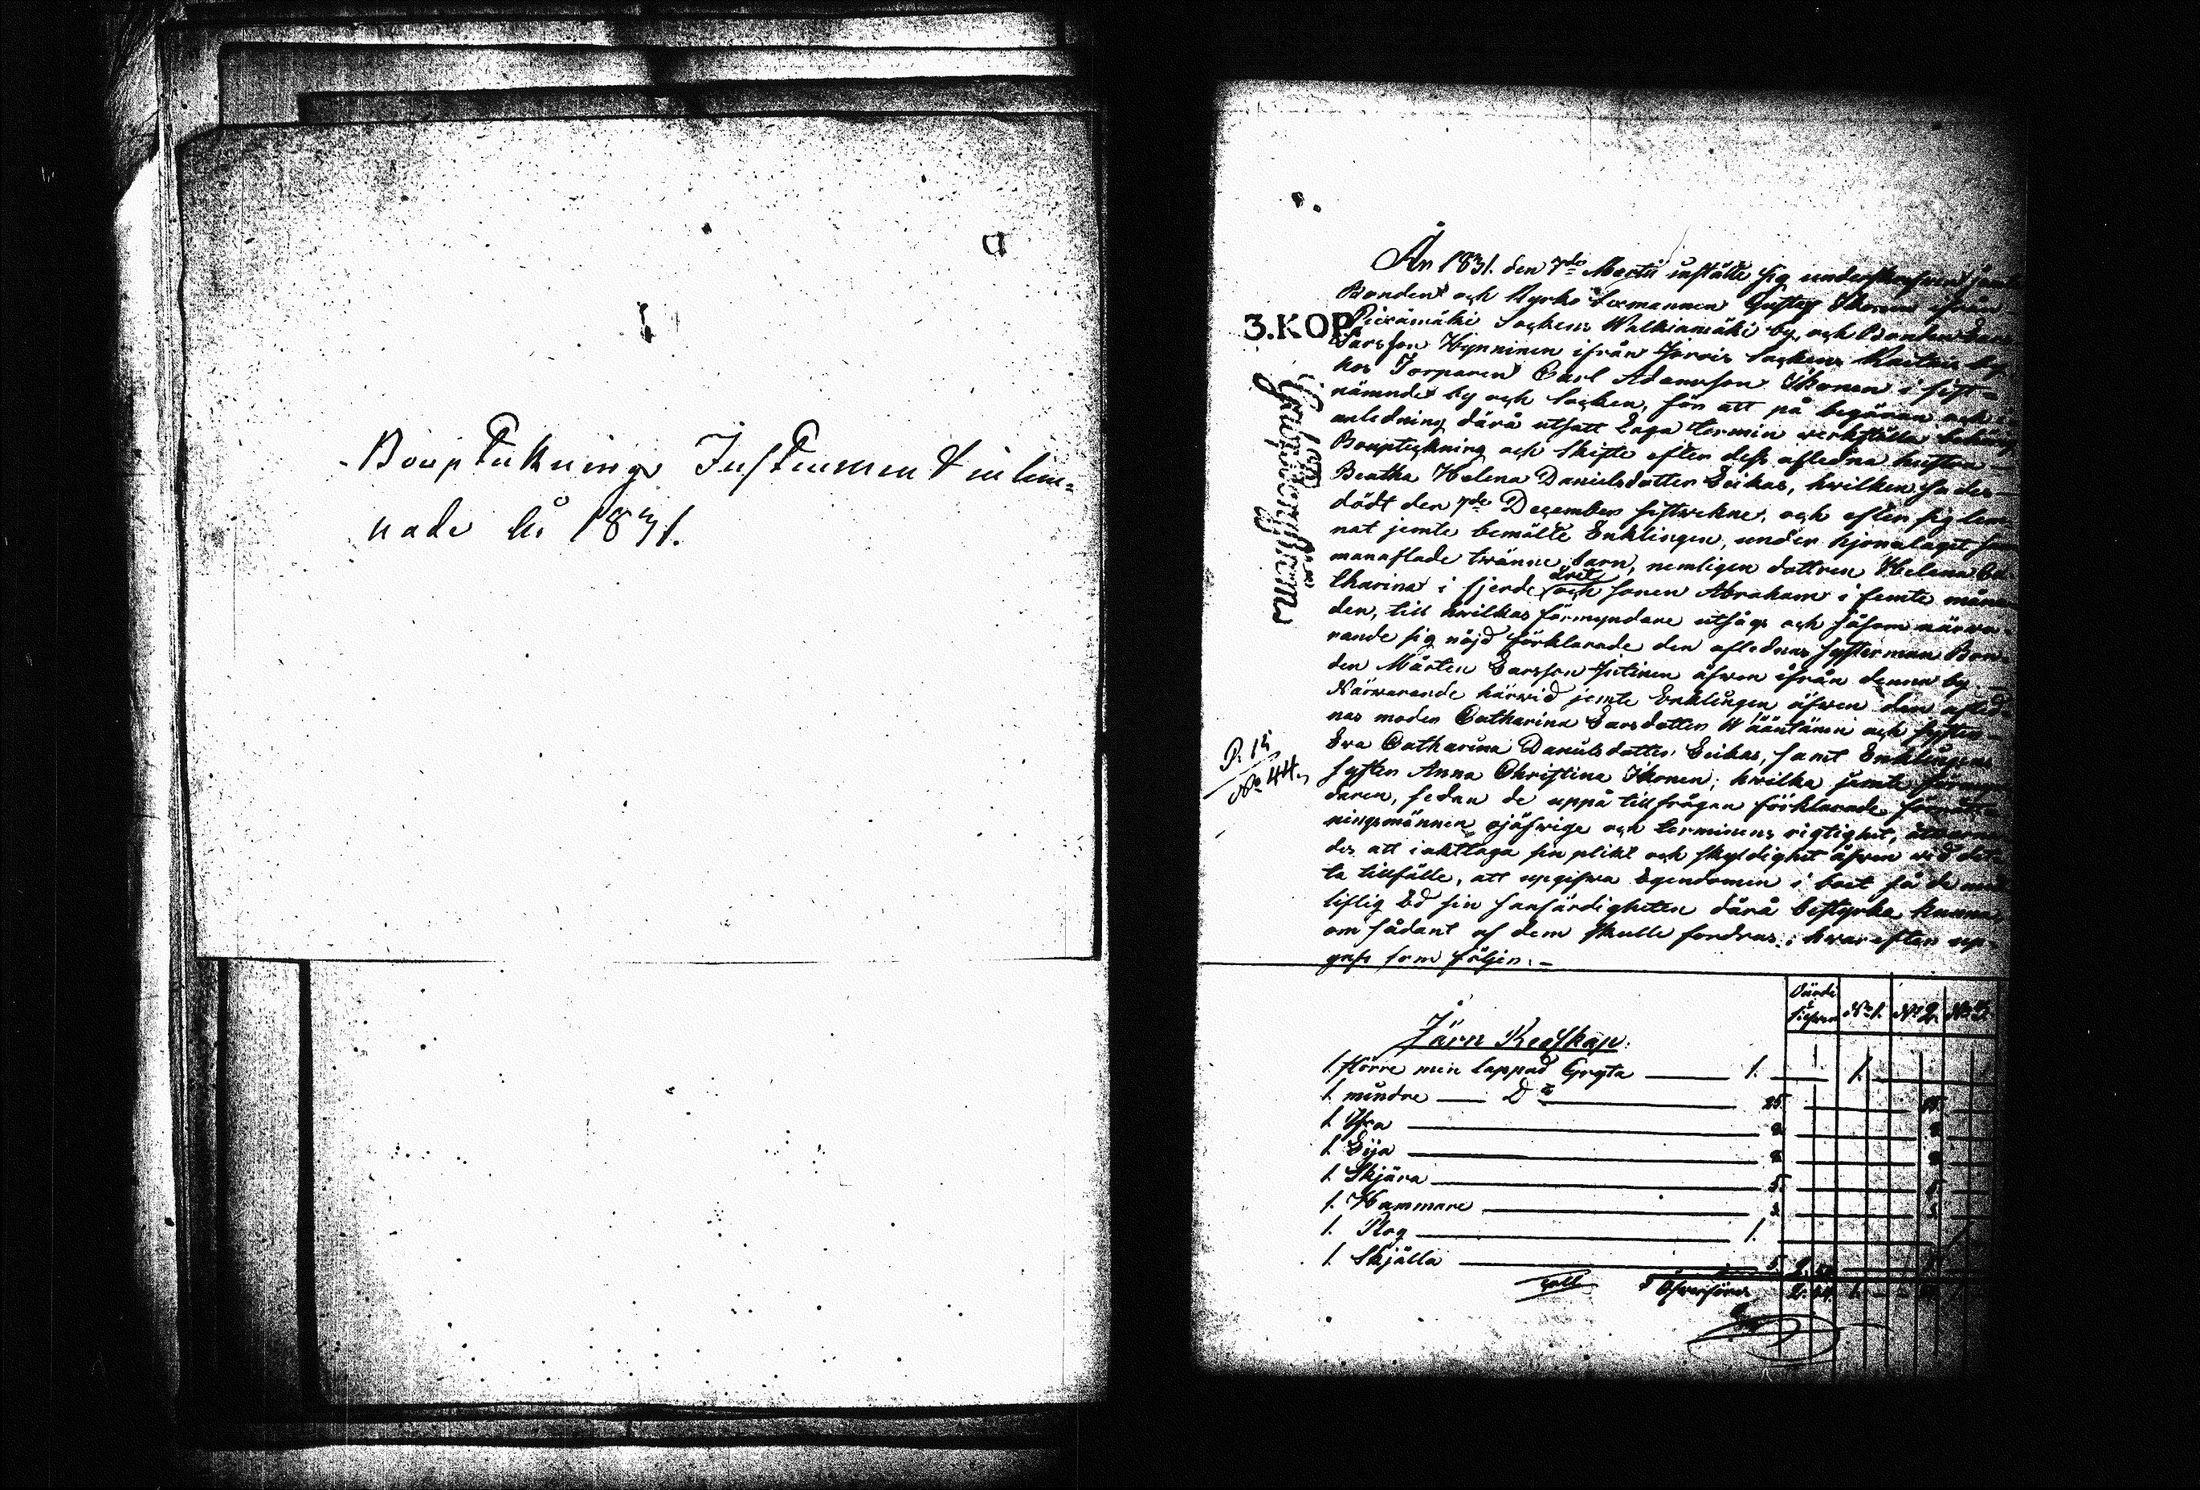 Boupteknings Instrument inlem-
nade År 1831.
År 1831. den 7de Martii instälte sig underskrefven jämte
Bonden och Kyrko Sexmannen Gustaf Ikonen ifrån
Piexämäki Sockens Walkiamäki by, och Bonden Lars
Larsson Hynninen ifrån Jorois Sockens by
hos Torparen Carl Adamsson Ikonen i sist-
nämnde by och Socken, för att på begäran och i
anledning därå utsatt Laga termin verkställa behörig
Bouptekning och Skifte efter dess afledna hustru
Beatha Helena Danielsdotter Leikas, hvilken sades
dödt den 7de December sistvekne, och efter sig lem-
nat jemte bemälte Enklingen, under hjonelaget sam-
manaflade tvänne barn, nemligen dottren Helena Ca-
tharina i fjerde året och Sonen Abraham i femte måna-
den, till hvilkas förmyndare utsågs och såsom närva-
rande sig nöjd förklarade den aflednas Systerman Bon-
den Mårten Larsson Hutinen äfven ifrån denna by.
Närvarande härvid jemte Enklingen äfven den afled-
nas moder Catharina Larsdotter Wäänänen och Syster
Eva Catharina Danielsdotter Leikas, samt Enklingens
Syster Anna Christina Ikonen; hvilka jemte förmyn-
daren, sedan de uppå tillfrågan förklarade förrätt-
ningsmännen ojäfvige och terminens rigtighet, åtvarna-
des att i akttaga sin plikt och skyldighet äfven vid det-
ta tillfälle, att upgifva Egendomen i boet så de med
liflig Ed sin sanfärdigheten därå bestyrka kunna
om sådant af dem skulle fordras; hvarefter up-
gafs som följer:
3.KOP.
P. 15
No 44.
Värde
Silfver No 1. No 2. No 3.
Järn Redskap:
1. större men lappad Gryta 1. 1. 1.
1. mindre Do 25. 25.
1. Yxa 8. 8.
1. Lija 8. 8.
1. Skjära 5. 5.
1. Hammare 3. 3.
1. Plog 1.
1. Skjälla 5.
Öfverföres